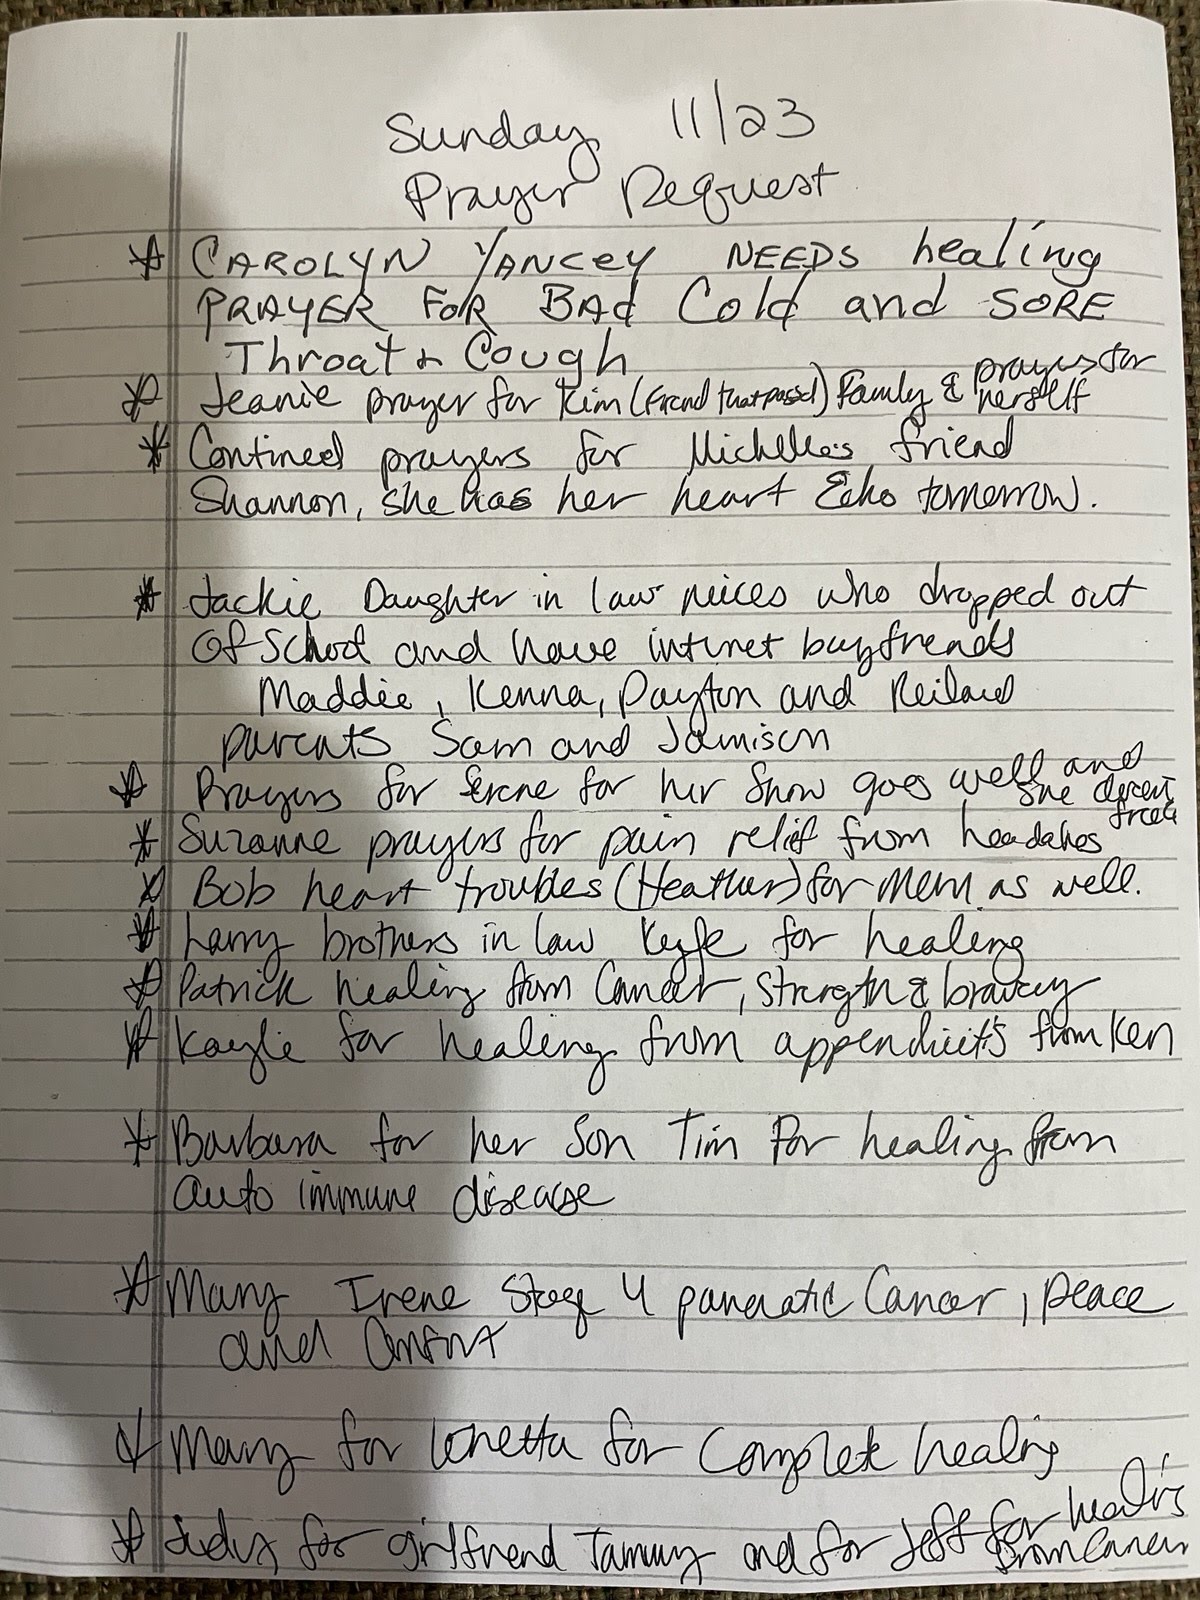 Sunday 11/23
Prayer Request
* CAROLYN YANCEY NEEDS healing
PRAYER FOR BAd Cold and SORE
Throat & Cough
* Jeanie prayer for Kim (Friend that passed) Family & prayers for
herself
* Contined prayers for Michelle's friend
Shannon, she has her heart Echo tomorrow.
* Jackie Daughter in law neices who dropped out
Of School and have internet boyfriends
Maddie, Kenna, Payton and
parents Sam and Jamison
* Prayers for for her Show goes well and
she
* Suzanne prayers for pain relief from headahes
* Bob heart troubles (Heather) for Mem as well.
* Larry brothers in law for healing
* Patrick healing from Cancer, Strength & bravery
* Kaylie for healing from appendicitis from Ken
* Barbara for her Son Tim For healing from
auto immune disease
* Mary Irene Stage 4 pancreatic Cancer, peace
and Comfort
* Mary for Lonetta for Complete healing
* Judy for girlfriend Tammy and for Jeff for healing
from Cancer